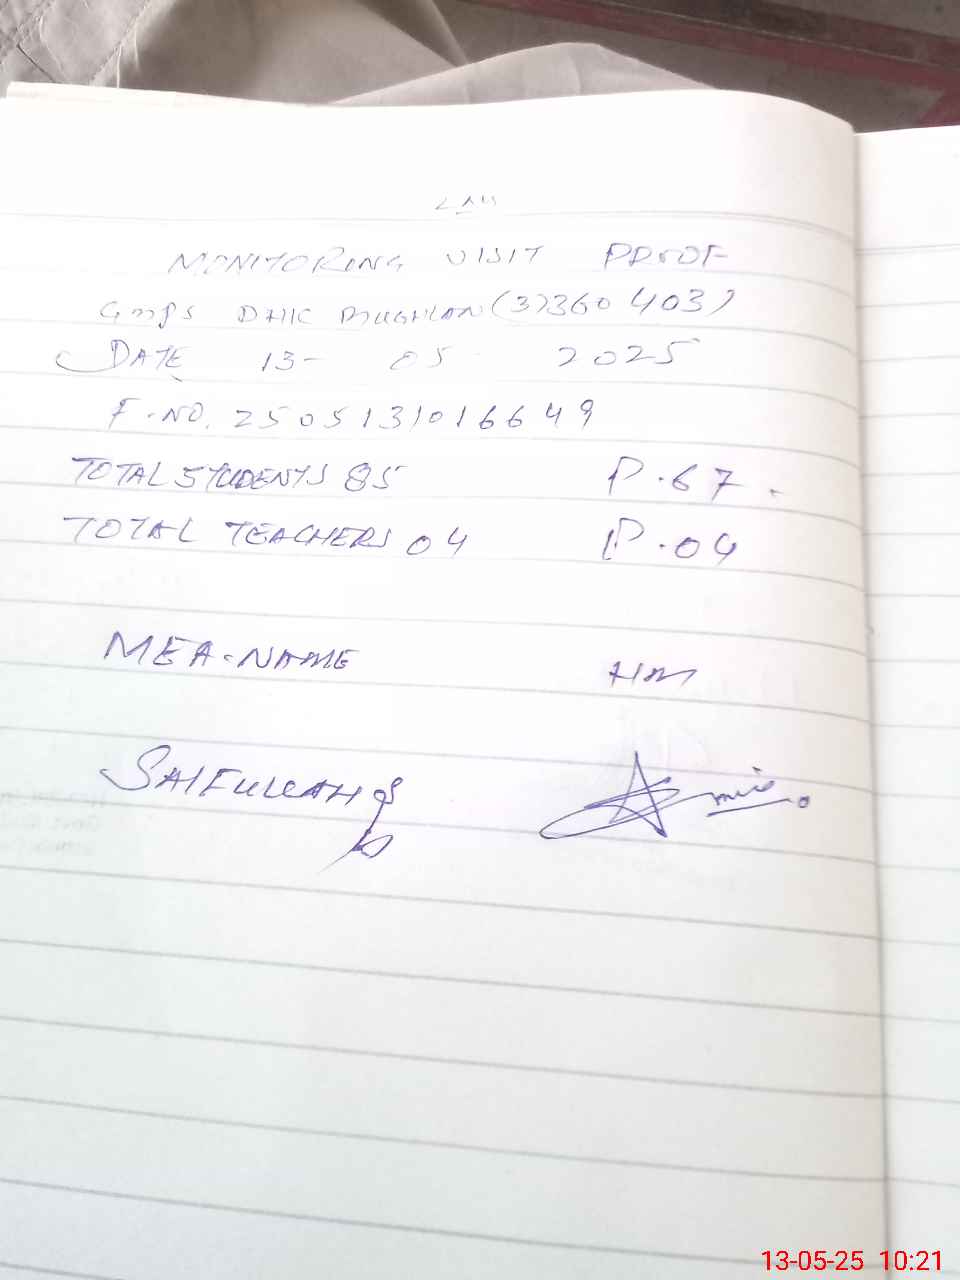 MONITORING VISIT PROOF
GMPS DHK BUGHLAN (37360403)
DATE 13- 05 2025
F.NO. 2505131016649
TOTAL STUDENTS 85 P.67.
TOTAL TEACHERS 04 P.04
MEA-NAME HM
SAIFULLAH
13-05-25 10:21